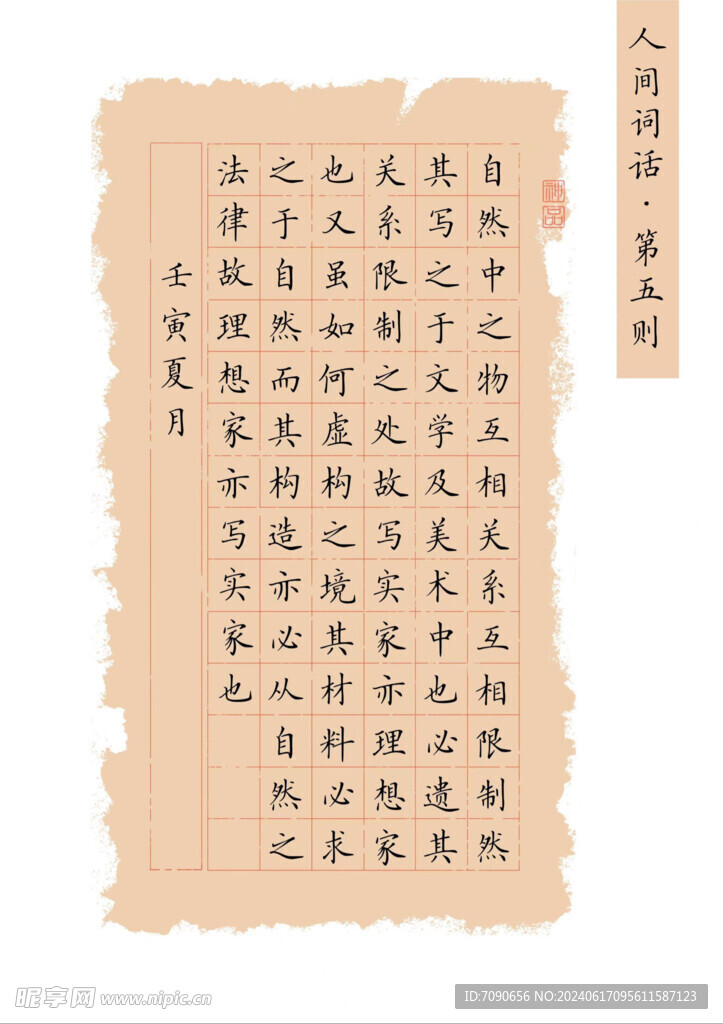 人间词话·第五则
神品
自然中之物互相关系互相限制然
其写之于文学及美术中也必遗其
关系限制之处故写实家亦理想家
也又虽如何虚构之境其材料必求
之于自然而其构造亦必从自然之
法律故理想家亦写实家也
壬寅夏月
昵享网 www.nipic.cn
ID:7090656 NO:20240617095611587123